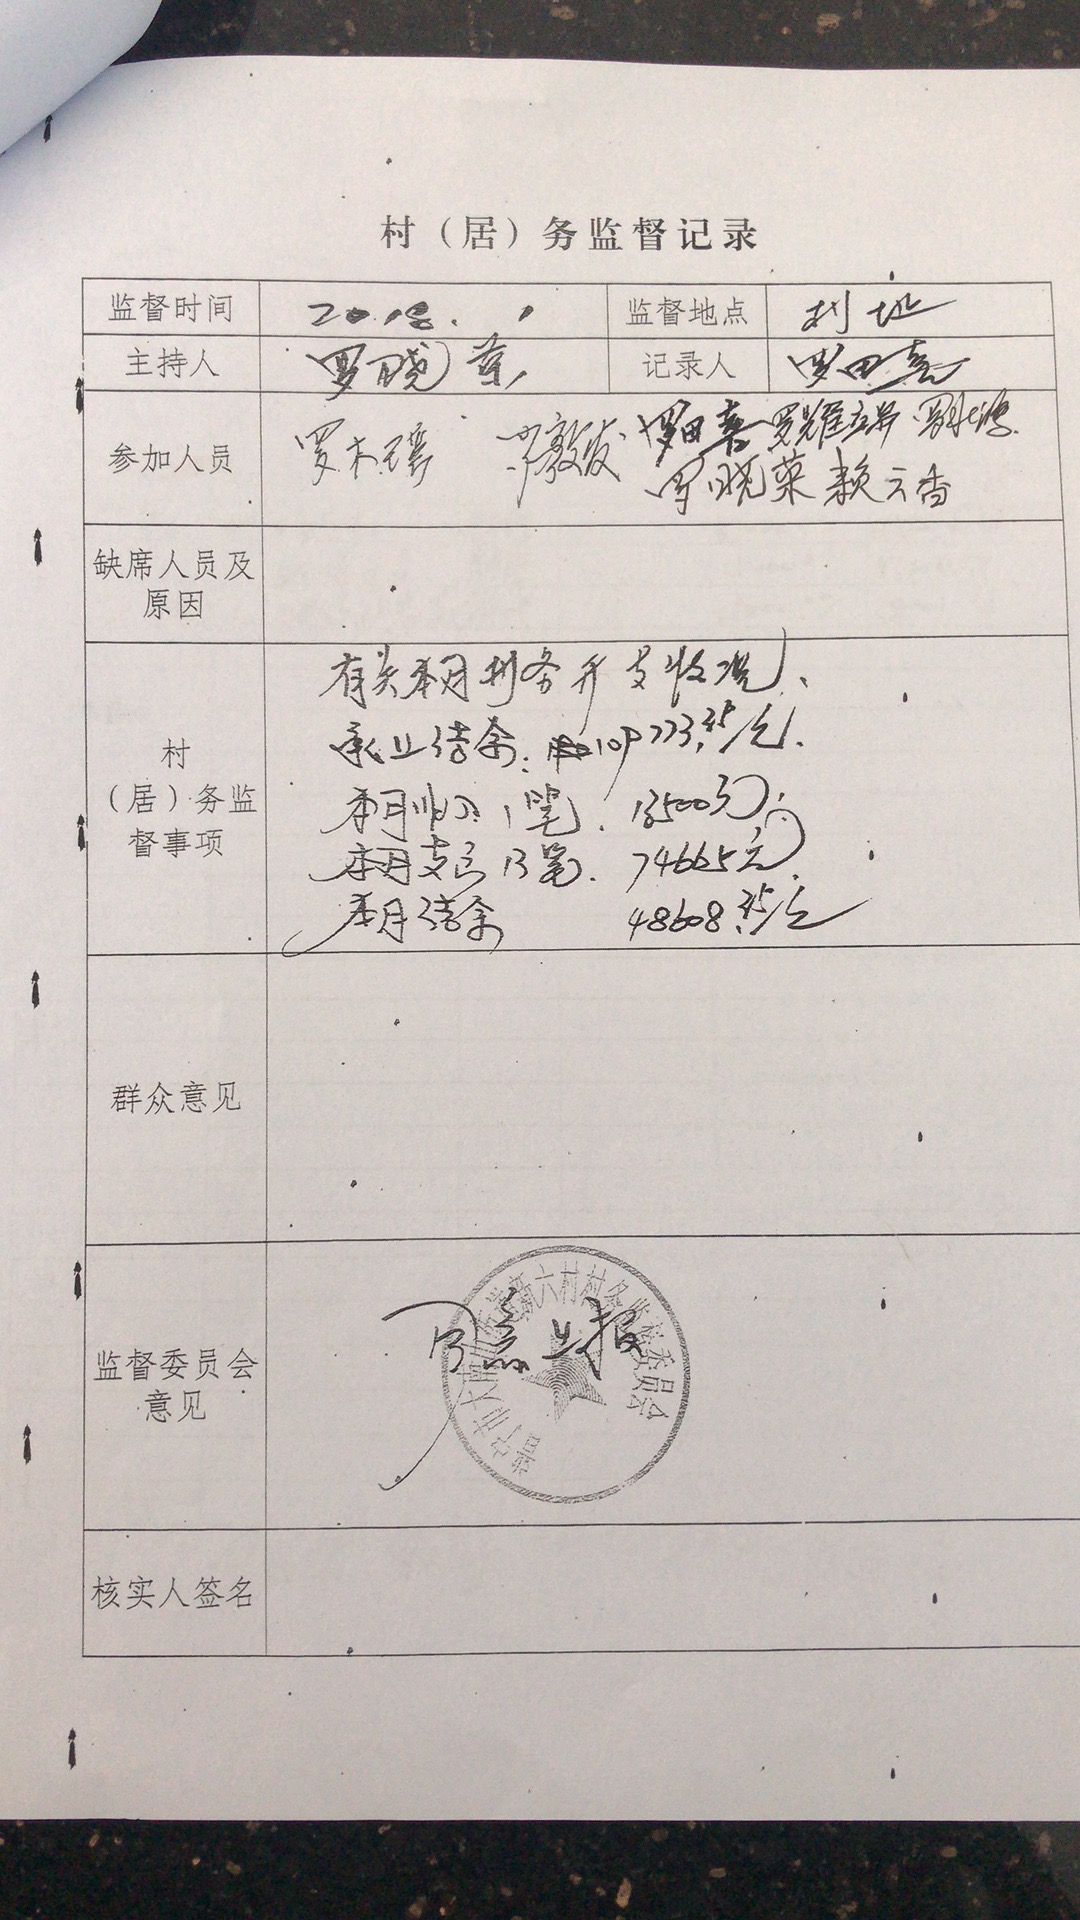 村（居）务监督记录
监督时间 2018. 1 监督地点 村址
主持人 罗晓 记录人 罗田喜
参加人员 罗木 罗田喜 罗耀
罗晓菜 赖云香
缺席人员及
原因
村
（居）务监
督事项
有关本月村务开支收况、
承上结余: 109773.35元.
本月收入1笔. 13500元.
本月支出13笔. 74665元.
本月结余 48608.35元
群众意见
监督委员会
意见
同意上报
第六村村务监督委员会
普宁市大
核实人签名